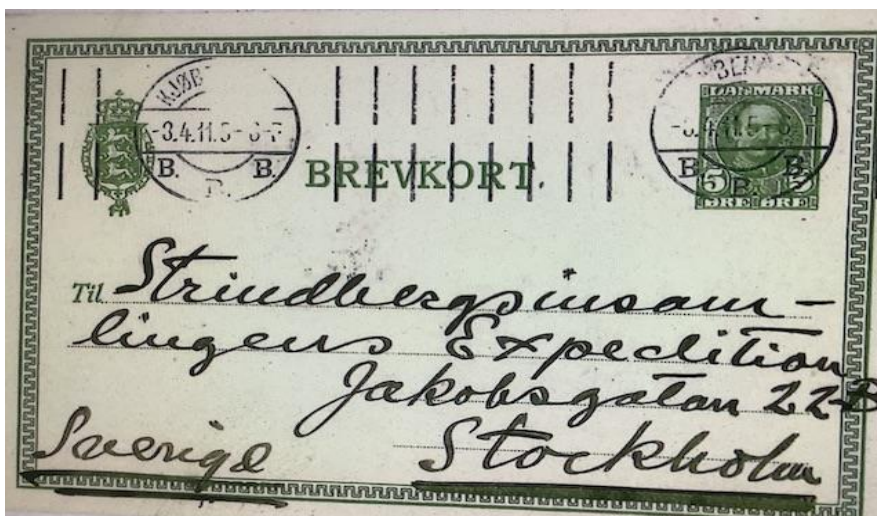 KJØB
-3.4.11.5-6 F
B. B.
B.
BREVKORT.
DANMARK
5 5
ØRE ØRE
B. B.
B.
Til Strindbergsinsam-
lingens Expedition
Jakobsgatan 22 B
Sverige Stockholm